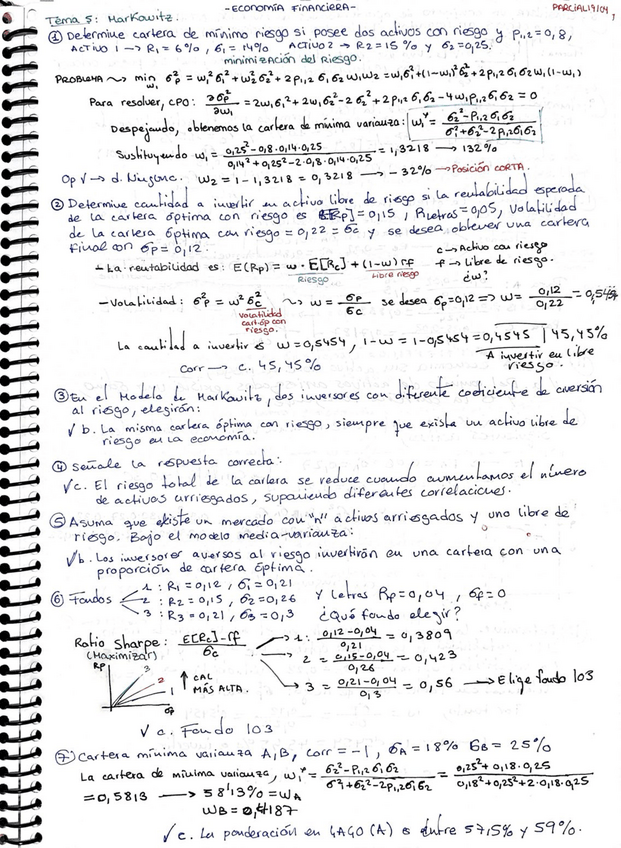 -ECONOMÍA FINANCIERA-
PARCIAL19/04
1
Tema 5: Markowitz.
① Determine cartera de mínimo riesgo si posee dos activos con riesgo y ρ1,2=0,8,
ACTIVO 1 → R1 = 6%, σ1 = 14% ACTIVO 2 → R2 = 15% y σ2=0,25.
minimización del Riesgo.
PROBLEMA ⤳ min w1 σp² = w1²σ1² + w2²σ2² + 2ρ1,2 σ1 σ2 w1 w2 = w1²σ1² + (1-w1)²σ2² + 2ρ1,2 σ1 σ2 w1 (1-w1)
Para resolver, CPO: ∂σp²/∂w1 = 2w1σ1² + 2w1σ2² - 2σ2² + 2ρ1,2 σ1σ2 - 4w1ρ1,2σ1σ2 = 0
Despejando, obtenemos la cartera de mínima varianza: w1* = (σ2² - ρ1,2σ1σ2)/(σ1² + σ2² - 2ρ1,2σ1σ2)
Sustituyendo w1 = (0,25² - 0,8·0,14·0,25)/(0,14² + 0,25² - 2·0,8·0,14·0,25) = 1,3218 → 132%
Op √ → d. Ninguna. w2 = 1 - 1,3218 = 0,3218 → -32% → Posición CORTA.
② Determine cantidad a invertir en activo libre de riesgo si la rentabilidad esperada
de la cartera óptima con riesgo es E[Rp] = 0,15, Rletras = 0,05, Volatilidad
de la cartera óptima con riesgo = 0,22 = σc y se desea obtener una cartera
final con σp = 0,12.
- La rentabilidad es: E(Rp) = w · E[Rc] + (1-w)rf
c → Activo con riesgo
Riesgo
Libre riesgo
f → Libre de riesgo.
¿w?
- Volatilidad: σp² = w²σc² ⤳ w = σp/σc se desea σp=0,12 ⇒ w = 0,12/0,22 = 0,5454
Volatilidad
cart. óp con
riesgo.
La cantidad a invertir es w = 0,5454, 1-w = 1-0,5454 = 0,4545 | 45,45%
Corr → c. 45,45%
A invertir en libre
riesgo.
③ En el Modelo de Markowitz, dos inversores con diferente coeficiente de aversión
al riesgo, elegirán:
√ b. La misma cartera óptima con riesgo, siempre que exista un activo libre de
riesgo en la economía.
④ Señale la respuesta correcta:
√ c. El riesgo total de la cartera se reduce cuando aumentamos el número
de activos arriesgados, suponiendo diferentes correlaciones.
⑤ Asuma que existe un mercado con "n" activos arriesgados y uno libre de
riesgo. Bajo el modelo media-varianza:
√ b. Los inversores aversos al riesgo invertirán en una cartera con una
proporción de cartera óptima.
⑥ Fondos
1: R1 = 0,12, σ1 = 0,21
2: R2 = 0,15, σ2 = 0,26
3: R3 = 0,21, σ3 = 0,3
y Letras Rp = 0,04, σp = 0
¿Qué fondo elegir?
Ratio Sharpe: (E[Rc] - rf)/σc
(Maximizar)
1: (0,12-0,04)/0,21 = 0,3809
2 = (0,15-0,04)/0,26 = 0,423
3 = (0,21-0,04)/0,3 = 0,56 → Elige fondo 103
Rp
3
2
1
σp
↑ CAL
MÁS ALTA.
√ c. Fondo 103
⑦ Cartera mínima varianza A,B, corr = -1, σA = 18% σB = 25%
La cartera de mínima varianza, w1* = (σ2² - ρ1,2σ1σ2)/(σ1² + σ2² - 2ρ1,2σ1σ2) = (0,25² + 0,18·0,25)/(0,18² + 0,25² + 2·0,18·0,25)
= 0,5813 → 58'13% = wA
wB = 0,4187
√ c. La ponderación en 4AGO (A) es entre 57,5% y 59%.